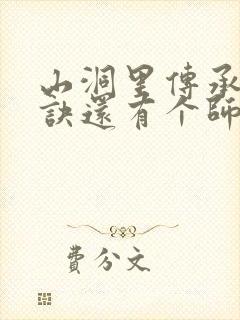 山洞里傳承
訣還有个師
費分文